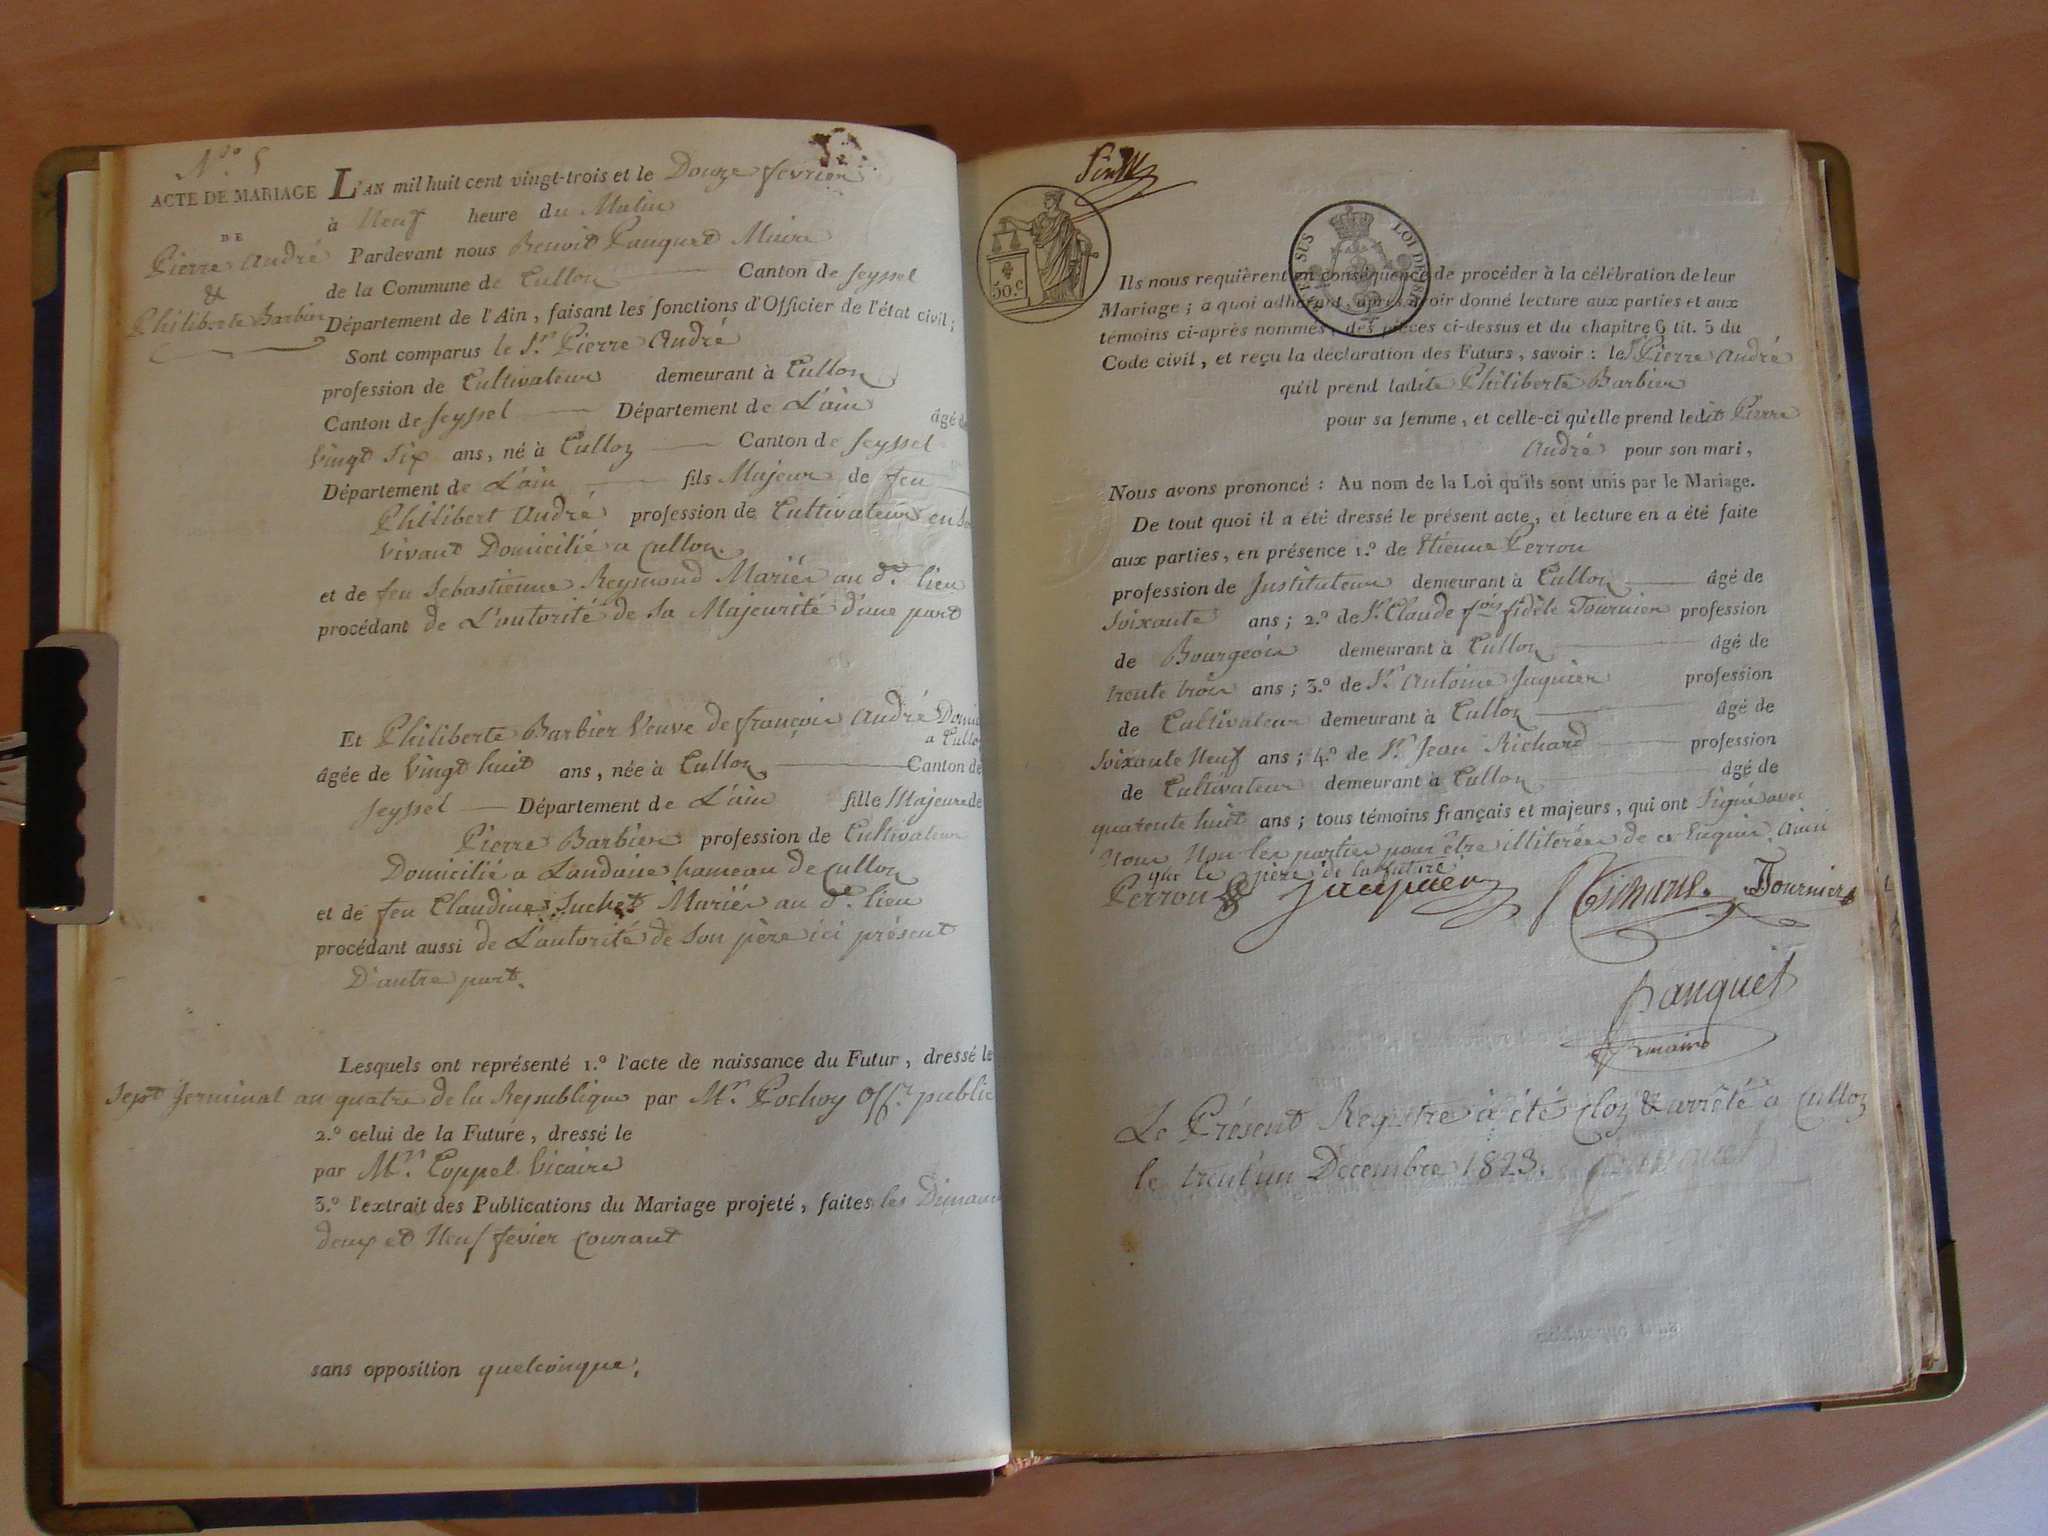 N.o 5
ACTE DE MARIAGE
DE
Pierre André
&
Philiberte Barbier
L'AN mil huit cent vingt-trois et le Douze fevrier
à Neuf heure du Matin
Pardevant nous Benoit Pauquet Maire
de la Commune de Culloz Canton de Seyssel
Département de l'Ain, faisant les fonctions d'Officier de l'état civil;
Sont comparus le Sr. Pierre André
profession de Cultivateur demeurant à Culloz
Canton de Seyssel Département de L'ain âgé de
Vingt Six ans, né à Culloz Canton de Seyssel
Département de L'ain fils Majeur de feu
Philibert André profession de Cultivateur en son
Vivant Domicilié a Culloz.
et de feu Sebastienne Reymond Mariés au dt. lieu
procédant de L'autorité de Sa Majeurité d'une part
Et Philiberte Barbier Veuve de françois André
a Culloz
âgée de Vingt huit ans, née à Culloz Canton de
Seyssel Département de L'ain fille Majeure de
Pierre Barbier profession de Cultivateur
Domicilié a Landaize hameau de Culloz
et de feu Claudine Suchet Mariés au dt. lieu
procédant aussi de L'autorité de Son père ici présent
D'autre part.
Lesquels ont représenté 1.o l'acte de naissance du Futur, dressé le
Sept Jerminal an quatre de la Republique par Mr. Pochoy Offr. public
2.o celui de la Future, dressé le
par Mr. Coppel Vicaire
3.o l'extrait des Publications du Mariage projeté, faites les
deux et Neuf fevier Courant
sans opposition quelconque;
50.c
LOI DE
Ils nous requièrent en conséquence de procéder à la célébration de leur
Mariage; à quoi adhérant, après avoir donné lecture aux parties et aux
témoins ci-après nommés, des pièces ci-dessus et du chapitre 6 tit. 5 du
Code civil, et reçu la déclaration des Futurs, savoir: le Sr Pierre André
qu'il prend ladite Philiberte Barbier
pour sa femme, et celle-ci qu'elle prend ledit Pierre
André pour son mari,
Nous avons prononcé: Au nom de la Loi qu'ils sont unis par le Mariage.
De tout quoi il a été dressé le présent acte, et lecture en a été faite
aux parties, en présence 1.o de Etienne Perrou
profession de Instituteur demeurant à Culloz âgé de
Soixante ans; 2.o de Sr. Claude fois fidèle Tournier profession
de Bourgeois demeurant à Culloz âgé de
trente trois ans; 3.o de Sr. Antoine Juquier profession
de Cultivateur demeurant à Culloz âgé de
Soixante Neuf ans; 4.o de Sr. Jean Richard profession
de Cultivateur demeurant à Culloz âgé de
quarente huit ans; tous témoins français et majeurs, qui ont Signé avec
Nous Non les parties pour être illiterées de ce Enquis. Ainsi
que le père de la future
Perrou Jacquier Richard Tournier
Pauquet
maire
Le Présent Registre à été Cloz & arrêté a Culloz
le trent'un Decembre 1823. Pauquet